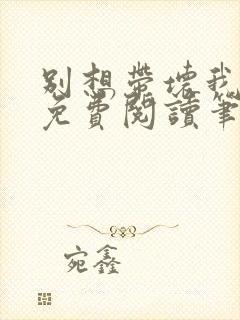 别想带坏我
免費閱讀筆
宛鑫